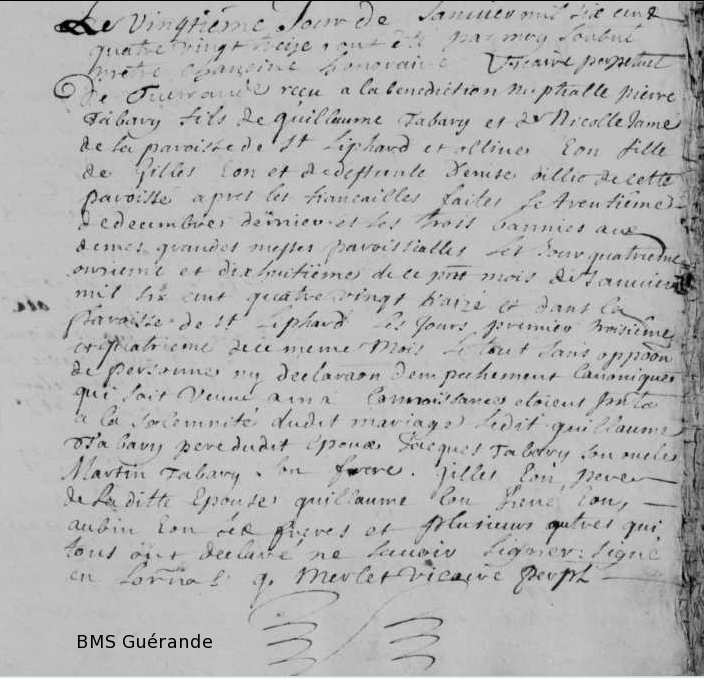 Le vingtieme Jour de Janvier mil six cent
quatre vingt treize, ont été par moy soubsi
pretre chanoine honoraire Vicaire perpetuel
De Guerande reçu a la benediction nuptialle pierre
Tabary fils de guillaume Tabary et de Nicolle Jame
de la paroisse de St Liphard et ollive Eon fille
de Gilles Eon et de deffunte Denise oillic de cette
paroisse apres les fiancailles faites le trentieme
de decembre dernier et les trois bannies aux
de nos grandes messes paroissialles les Jour quatrieme
onzieme et dixhuitieme de ce pnt mois de Janvier
mil six cent quatre vingt traize et dans la
paroisse de St Liphard les Jours premier troisieme
et quatrieme de ce meme Mois le tout sans oppoon
de personne ny declaraon dempechement Canonique
qui soit venue a ma Connoissance etoient pnts
a la solemnité dudit mariage ledit guillaume
Tabary pere dudit epoux Jacques Tabary son oncle
Martin Tabary son frere. Gilles Eon pere
de la ditte Epouse guillaume Eon Eon,
aubin Eon ses freres et plusieurs autres qui
tous ont declaré ne savoir signer: signé
en g. Merlet Vicaire perpl
BMS Guérande